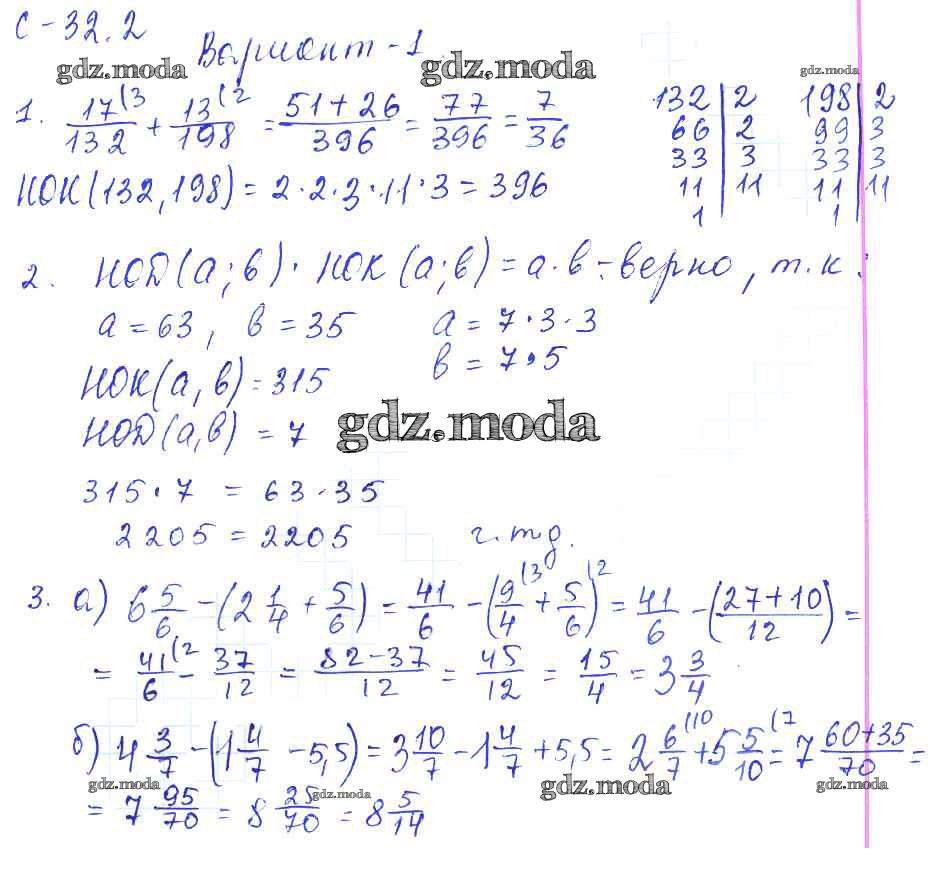 С-32.2
Вариант-1
gdz.moda gdz.moda gdz.moda
1. 17(3/132 + 13(2/198 = 51+26/396 = 77/396 = 7/36
НОК(132,198) = 2·2·3·11·3 = 396
132 | 2 198 | 2
66 | 2 99 | 3
33 | 3 33 | 3
11 | 11 11 | 11
1 1
2. НОД(а;в)·НОК(а;в) = а·в - верно, т.к:
а = 63, в = 35 а = 7·3·3
в = 7·5
НОК(а,в) = 315
НОД(а,в) = 7
gdz.moda
315·7 = 63·35
2205 = 2205 ч.т.д.
3. а) 6 5/6 - (2 1/4 + 5/6) = 41/6 - (9/4(3 + 5/6)(2 = 41/6 - (27+10/12) =
= 41/6(2 - 37/12 = 82-37/12 = 45/12 = 15/4 = 3 3/4
б) 4 3/7 - (1 4/7 - 5,5) = 3 10/7 - 1 4/7 + 5,5 = 2 6/7(10 + 5 5/10(7 = 7 60+35/70 =
gdz.moda gdz.moda gdz.moda gdz.moda
= 7 95/70 = 8 25/70 = 8 5/14